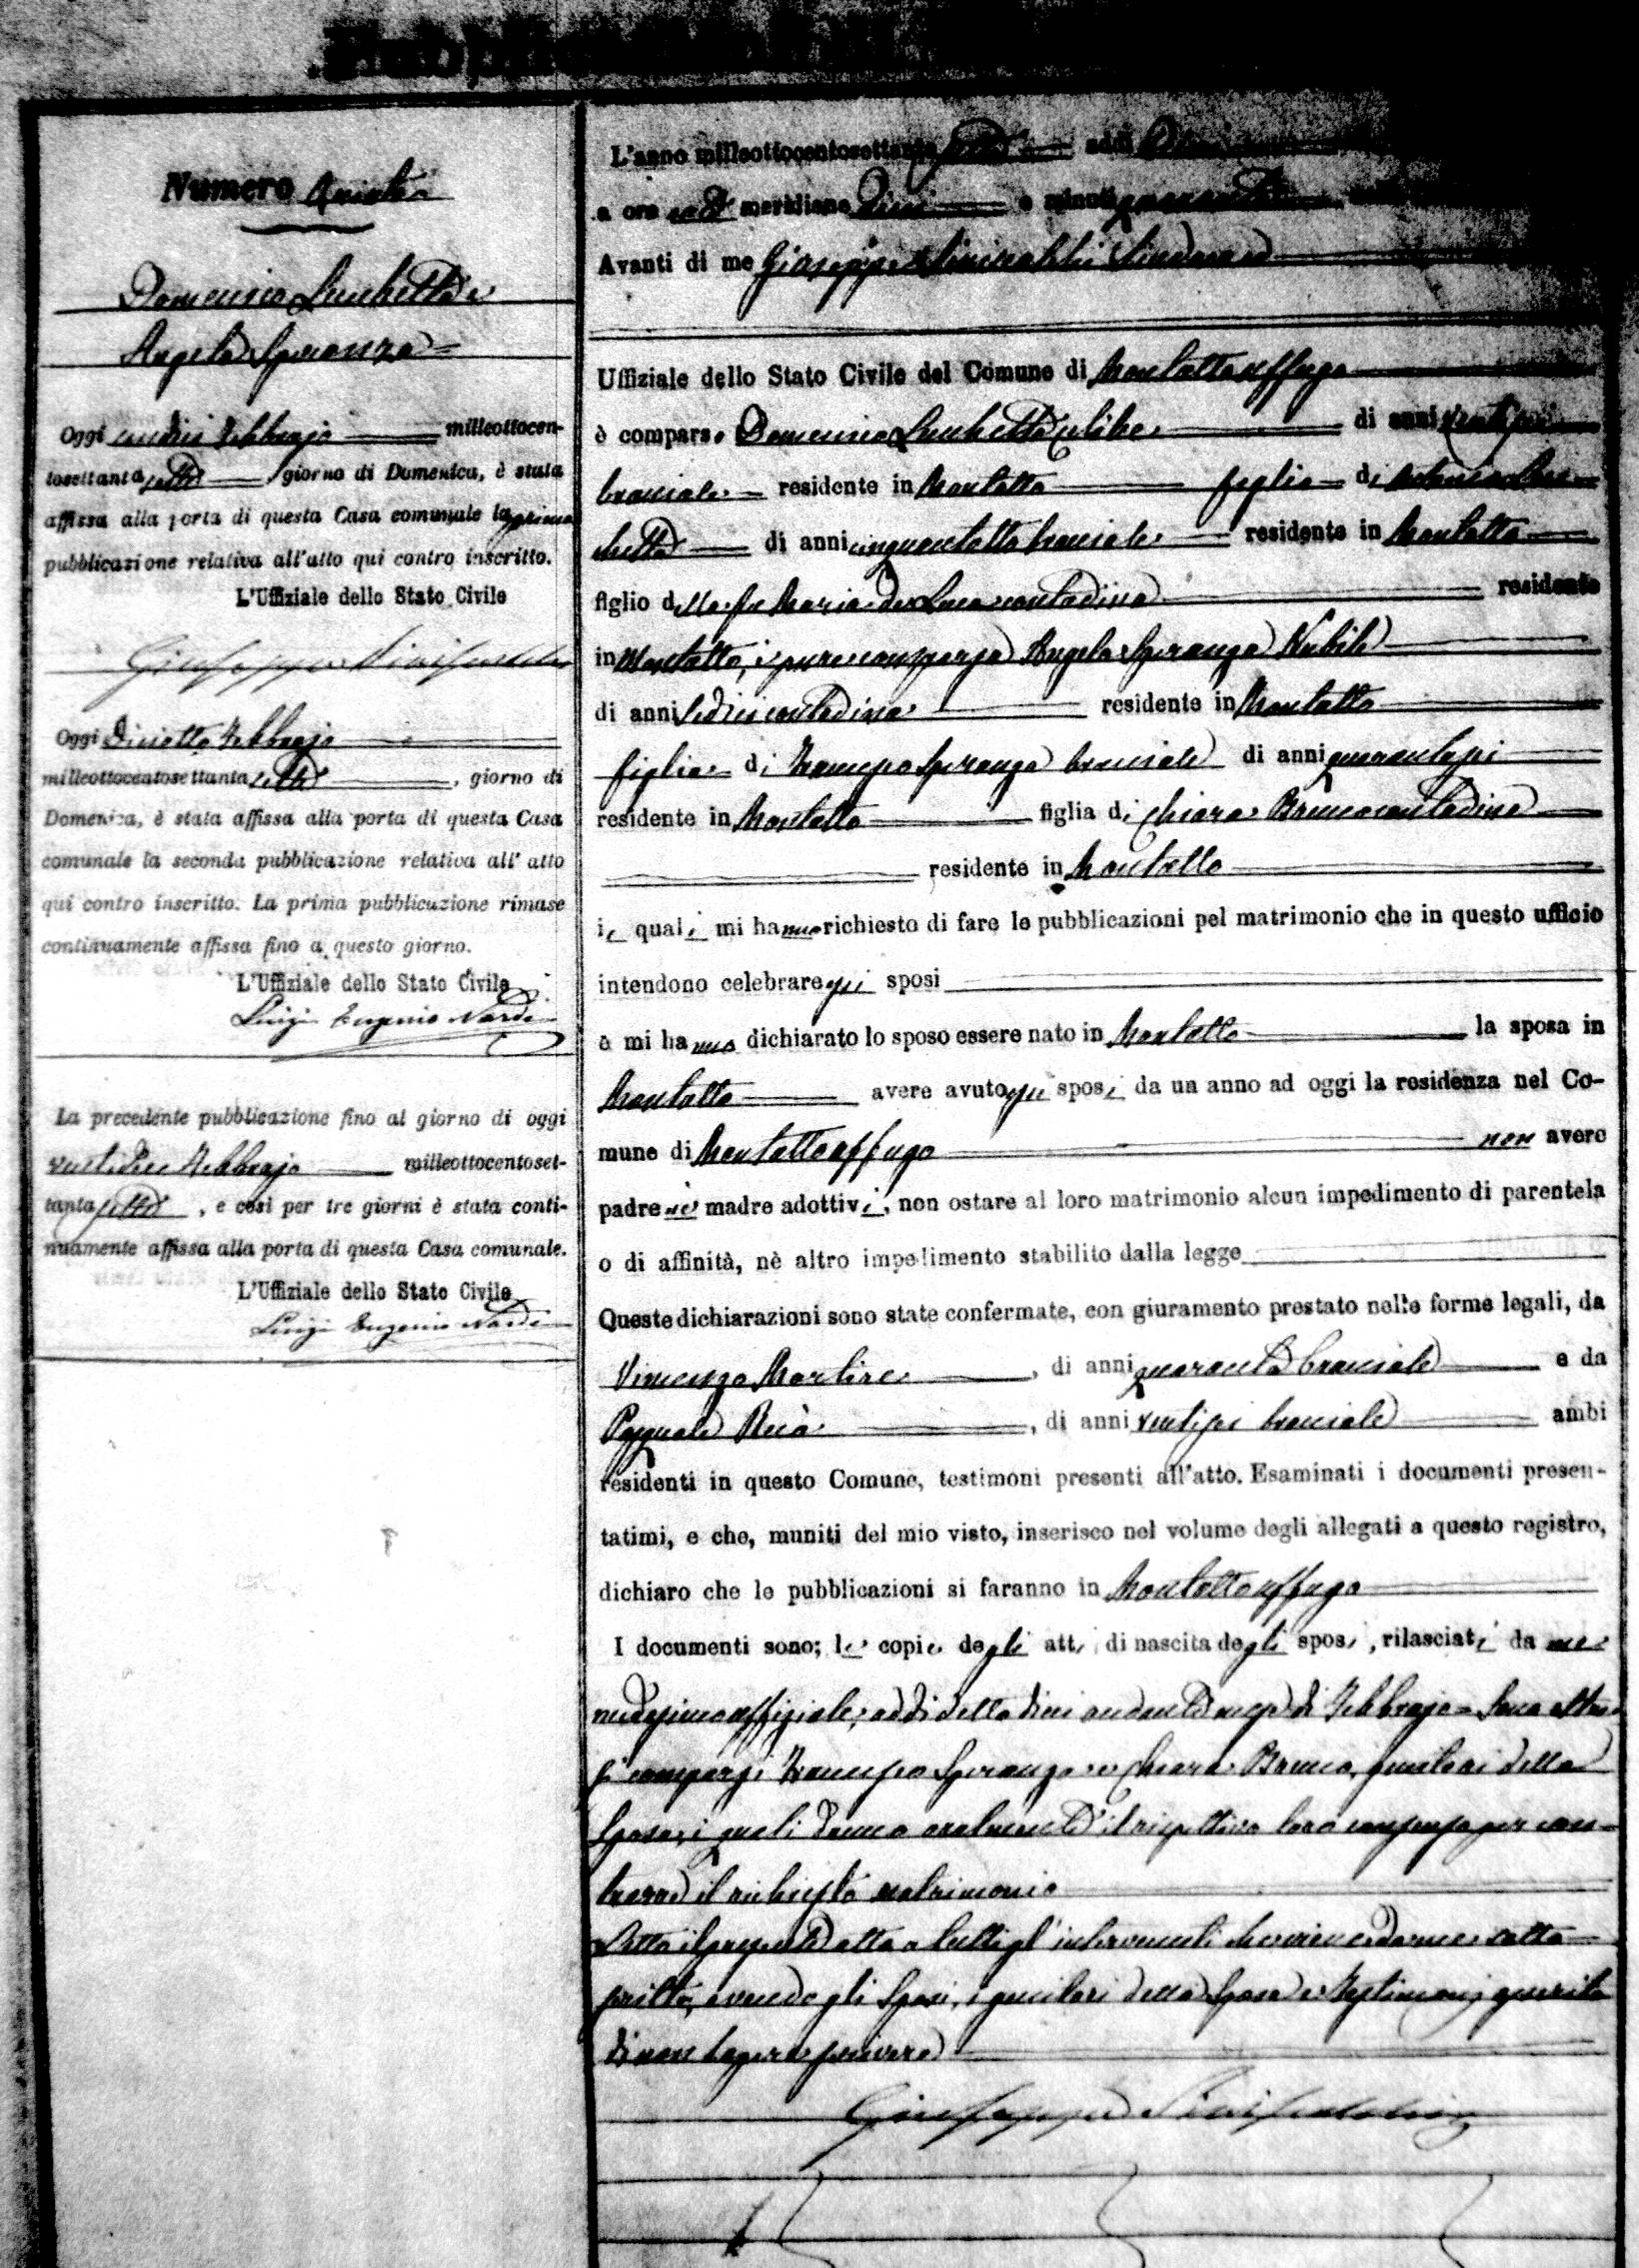 Numero
Domenico Luchetta e
Angela Speranza
Oggi undici Febbrajo milleottocen-
tosettanta sette giorno di Domenica, è stata
affissa alla porta di questa Casa comunale la prima
pubblicazione relativa all'atto qui contro inscritto.
L'Uffiziale dello Stato Civile
Giuseppe
Oggi Diciotto Febbrajo
milleottocentosettanta sette, giorno di
Domenica, è stata affissa alla porta di questa Casa
comunale la seconda pubblicazione relativa all' atto
qui contro inscritto. La prima pubblicazione rimase
continuamente affissa fino a questo giorno.
L'Uffiziale dello Stato Civile
Luigi Eugenio Nardi
La precedente pubblicazione fino al giorno di oggi
Febbrajo milleottocentoset-
tanta sette, e così per tre giorni è stata conti-
nuamente affissa alla porta di questa Casa comunale.
L'Uffiziale dello Stato Civile
Luigi Eugenio Nardi
L'anno milleottocentosettanta sette addì
a ore meridiane dieci e minuti quaranta
Avanti di me Giuseppe Sindaco
Uffiziale dello Stato Civile del Comune di Montaltouffugo
è comparso Domenico Luchetta celibe di anni ventisei
bracciale residente in Montalto figlio di Antonio Lu-
chetta di anni cinquantotto bracciale residente in Montalto
figlio della fu Maria de Luca contadina residente
in Montalto, è pure comparsa Angela Speranza Nubile
di anni sedici contadina residente in Montalto
figlia di Francesco Speranza bracciale di anni quarantasei
residente in Montalto figlia di Chiara Bruno contadina
residente in Montalto
i quali mi hanno richiesto di fare le pubblicazioni pel matrimonio che in questo ufficio
intendono celebrare gli sposi
e mi hanno dichiarato lo sposo essere nato in Montalto la sposa in
Montalto avere avuto gli sposi da un anno ad oggi la residenza nel Co-
mune di Montaltouffugo non avere
padre nè madre adottivi, non ostare al loro matrimonio alcun impedimento di parentela
o di affinità, nè altro impedimento stabilito dalla legge
Queste dichiarazioni sono state confermate, con giuramento prestato nelle forme legali, da
Vincenzo Martire, di anni quaranta bracciale e da
Pasquale, di anni ventisei bracciale ambi
residenti in questo Comune, testimoni presenti all'atto. Esaminati i documenti presen-
tatimi, e che, muniti del mio visto, inserisco nel volume degli allegati a questo registro,
dichiaro che le pubblicazioni si faranno in Montaltouffugo
I documenti sono; le copie degli atti di nascita degli sposi, rilasciati da me
medesimo uffiziale, addì sette andante mese di Febbrajo = Sono altre-
sì comparsi Francesco Speranza e Chiara Bruno, genitori della
Sposa, i quali danno oralmente il rispettivo loro consenso per con-
trarre il richiesto matrimonio
Letto il presente atto a tutti gl'intervenuti che viene da me sotto-
scritto, avendo gli Sposi, i genitori della Sposa e Testimonj asserito
di non sapere scrivere
Giuseppe